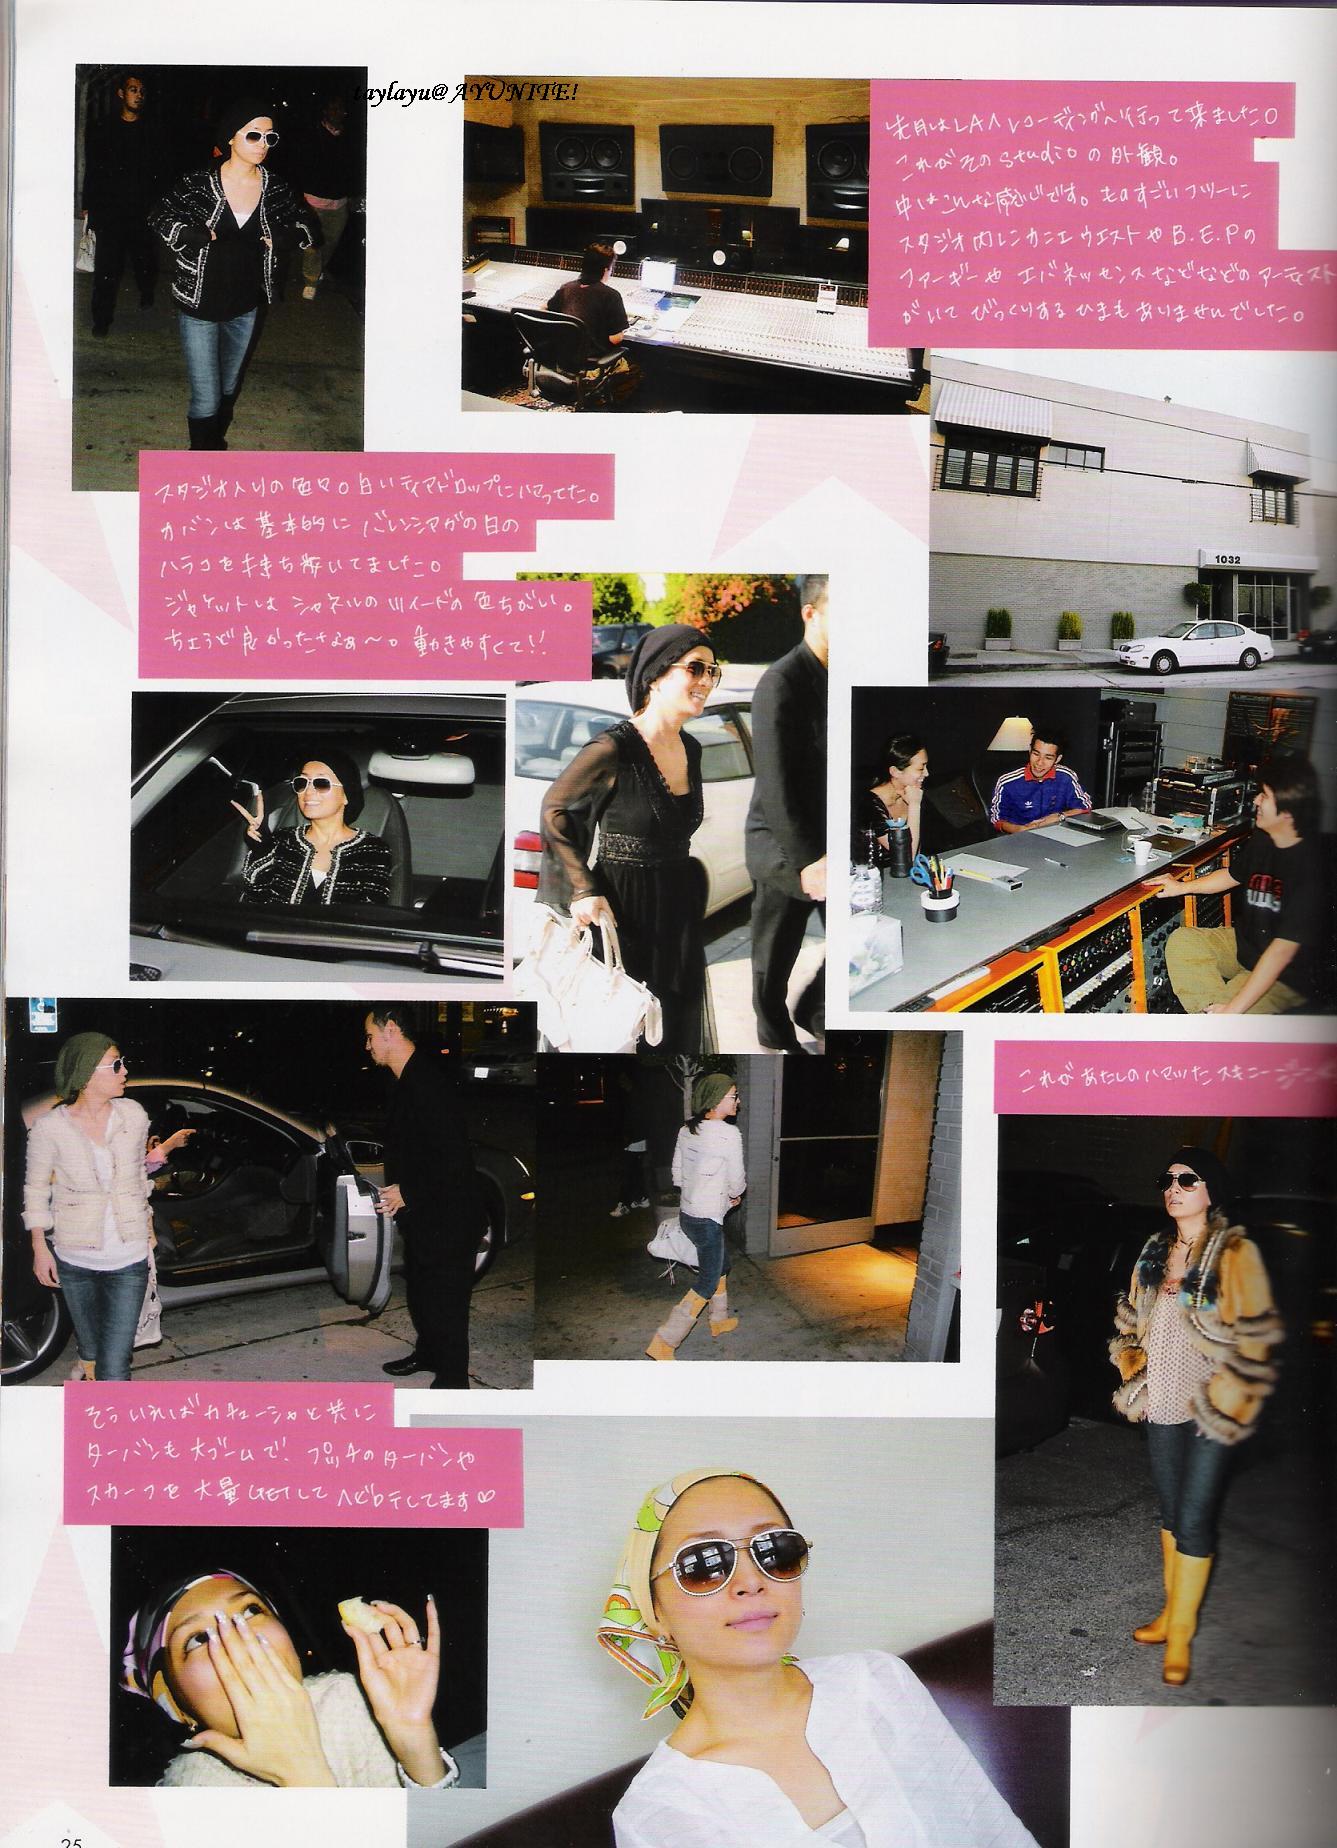 taylayu@AYUNITE!
先月はLAへレコーディングへ行って来ました。
これがそのstudioの外観。
中はこんな感じです。ものすごいフツーに
スタジオ内にカニエウエストやB.E.Pの
ファーギーやエバネッセンスなどなどのアーティスト
がいてびっくりするひまもありませんでした。
スタジオ入りの色々。白いティアドロップにハマってた。
カバンは基本的にバレンシアガの白の
ハラコを持ち歩いてました。
ジャケットはシャネルのツイードの色ちがい。
ちょうど良かったなぁ〜。動きやすくて!!
1032
これがあたしのハマったスキニージーンズ
そういえばカチューシャと共に
ターバンも大ブームで、プッチのターバンや
スカーフを大量GETしてヘビロテしてます♡
25